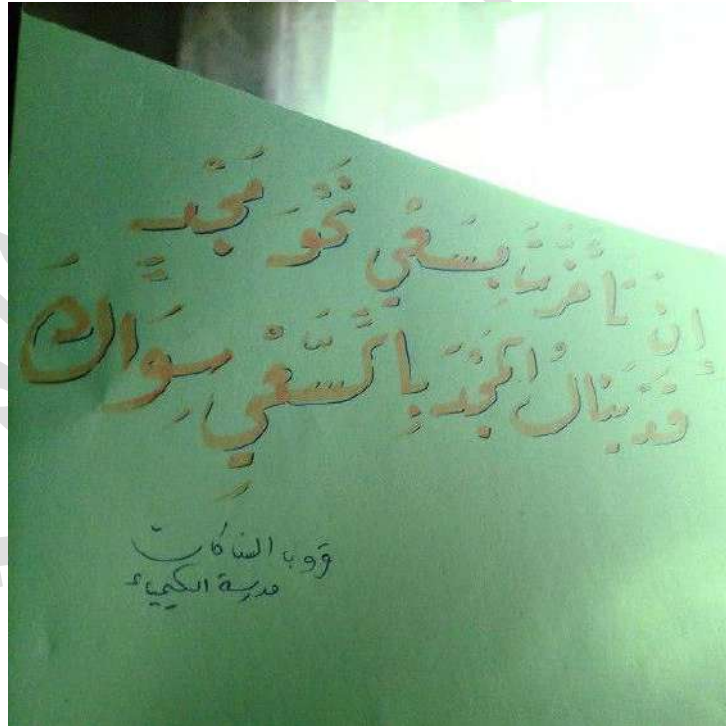 إِنْ تَأَخَّرْتَ بِسَعْيٍ نَحْوَ مَجْدٍ
قَدْ يَنَالُ الْمَجْدَ بِالسَّعْيِ سِوَاكَ
مدرسة الكيمياء